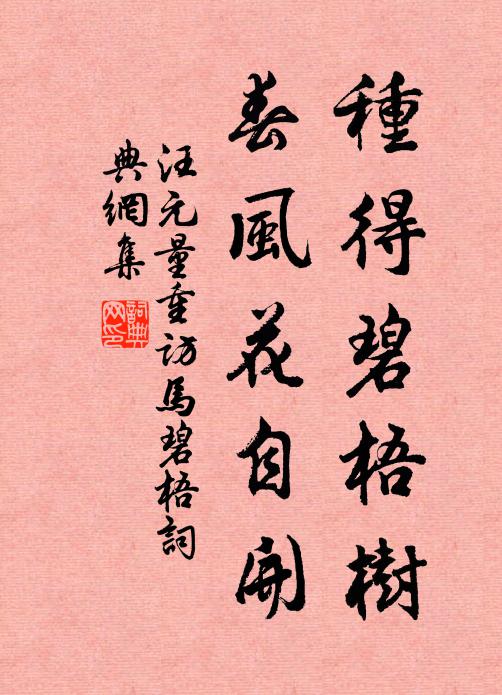 種得碧梧樹
春風花自開
汪元量重訪馬碧梧詞
典網集
詞典
网印